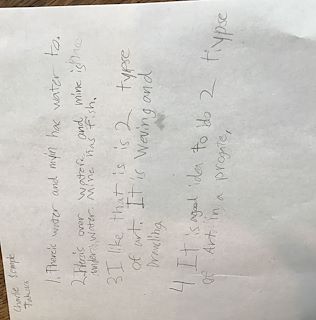 Charlie
1. Therck water and myn hac water to.
2. Heris over water and mine is
under water. Mine has fish.
3 I like that is is 2 typse
of art. It is Weving and
Drawling
4 It is a good idea to do 2 tiypse
of Art in a progre.